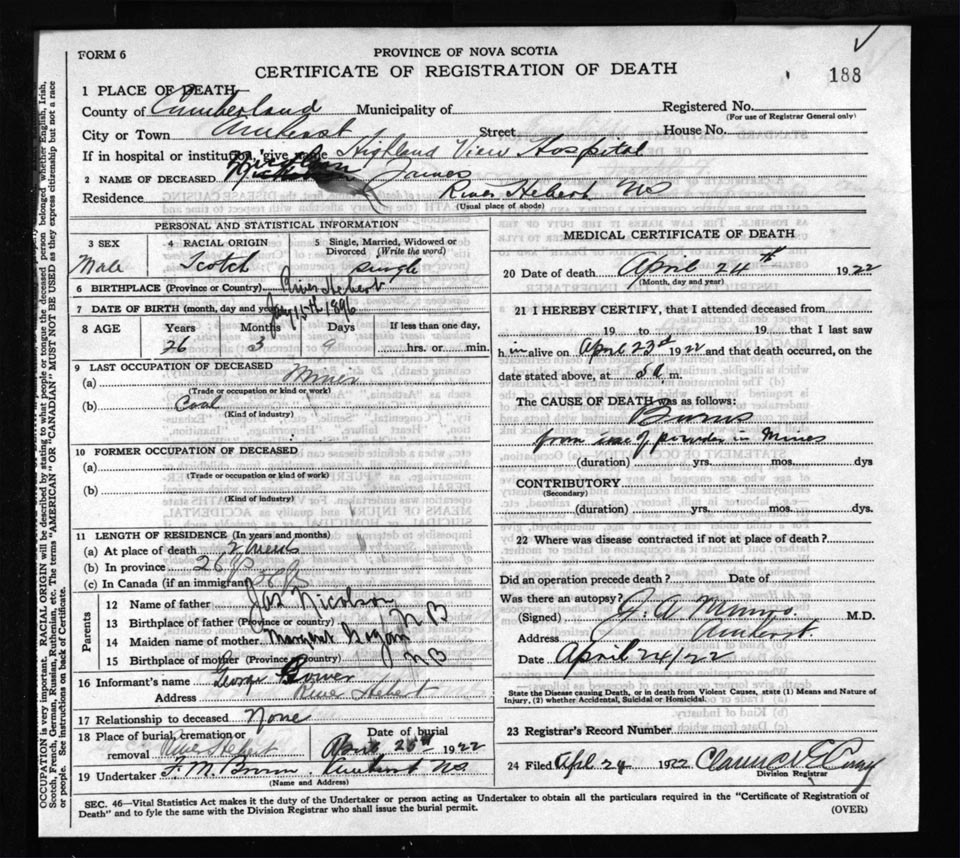 FORM 6
PROVINCE OF NOVA SCOTIA
CERTIFICATE OF REGISTRATION OF DEATH
188
1 PLACE OF DEATH
County of Cumberland Municipality of
Registered No.
(For use of Registrar General only)
City or Town Amherst Street House No.
If in hospital or institution, give name Highland View Hospital
2 NAME OF DECEASED James
Residence River Hebert NS
(Usual place of abode)
PERSONAL AND STATISTICAL INFORMATION
3 SEX
Male
4 RACIAL ORIGIN
Scotch
5 Single, Married, Widowed or
Divorced (Write the word)
Single
6 BIRTHPLACE (Province or Country) River Hebert
7 DATE OF BIRTH (month, day and year) Jany 15th 1896
8 AGE
Years
26
Months
3
Days
9
If less than one day,
hrs. or min.
9 LAST OCCUPATION OF DECEASED
(a) Miner
(Trade or occupation or kind or work)
(b) Coal
(Kind of industry)
10 FORMER OCCUPATION OF DECEASED
(a)
(Trade or occupation or kind of work)
(b)
(Kind of industry)
11 LENGTH OF RESIDENCE (In years and months)
(a) At place of death
(b) In province 26
(c) In Canada (if an immigrant)
Parents
12 Name of father Jas Nicolson
13 Birthplace of father (Province or country) N B
14 Maiden name of mother Margaret
15 Birthplace of mother (Province or country) N B
16 Informant's name George
Address River Hebert
17 Relationship to deceased None
18 Place of burial, cremation or
removal River Hebert
Date of burial
April 25th 1922
19 Undertaker F. M. Brown, Amherst NS
(Name and Address)
MEDICAL CERTIFICATE OF DEATH
20 Date of death April 24th 1922
(Month, day and year)
21 I HEREBY CERTIFY, that I attended deceased from
19 to 19 that I last saw
him alive on April 23rd 1922 and that death occurred, on the
date stated above, at m.
The CAUSE OF DEATH was as follows:
Burns
from use of powder in Mines
(duration) yrs. mos. dys
CONTRIBUTORY
(Secondary)
(duration) yrs. mos. dys.
22 Where was disease contracted if not at place of death?
Did an operation precede death? Date of
Was there an autopsy?
(Signed) J. A. Munro. M.D.
Address Amherst.
Date April 24/22
State the Disease causing Death, or in death from Violent Causes, state (1) Means and Nature of
Injury, (2) whether Accidental, Suicidal or Homicidal.
23 Registrar's Record Number
24 Filed Apl. 1922 Clarence E
Division Registrar
SEC. 46—Vital Statistics Act makes it the duty of the Undertaker or person acting as Undertaker to obtain all the particulars required in the "Certificate of Registration of
Death" and to fyle the same with the Division Registrar who shall issue the burial permit.
(OVER)
OCCUPATION is very important. RACIAL ORIGIN will be described by stating to what people or tongue the deceased person belonged whether English, Irish,
Scotch, French, German, Russian, Ruthenian, etc. The terms "AMERICAN" OR "CANADIAN" MUST NOT BE USED as they express citizenship but not a race
or people. See instructions on back of Certificate.